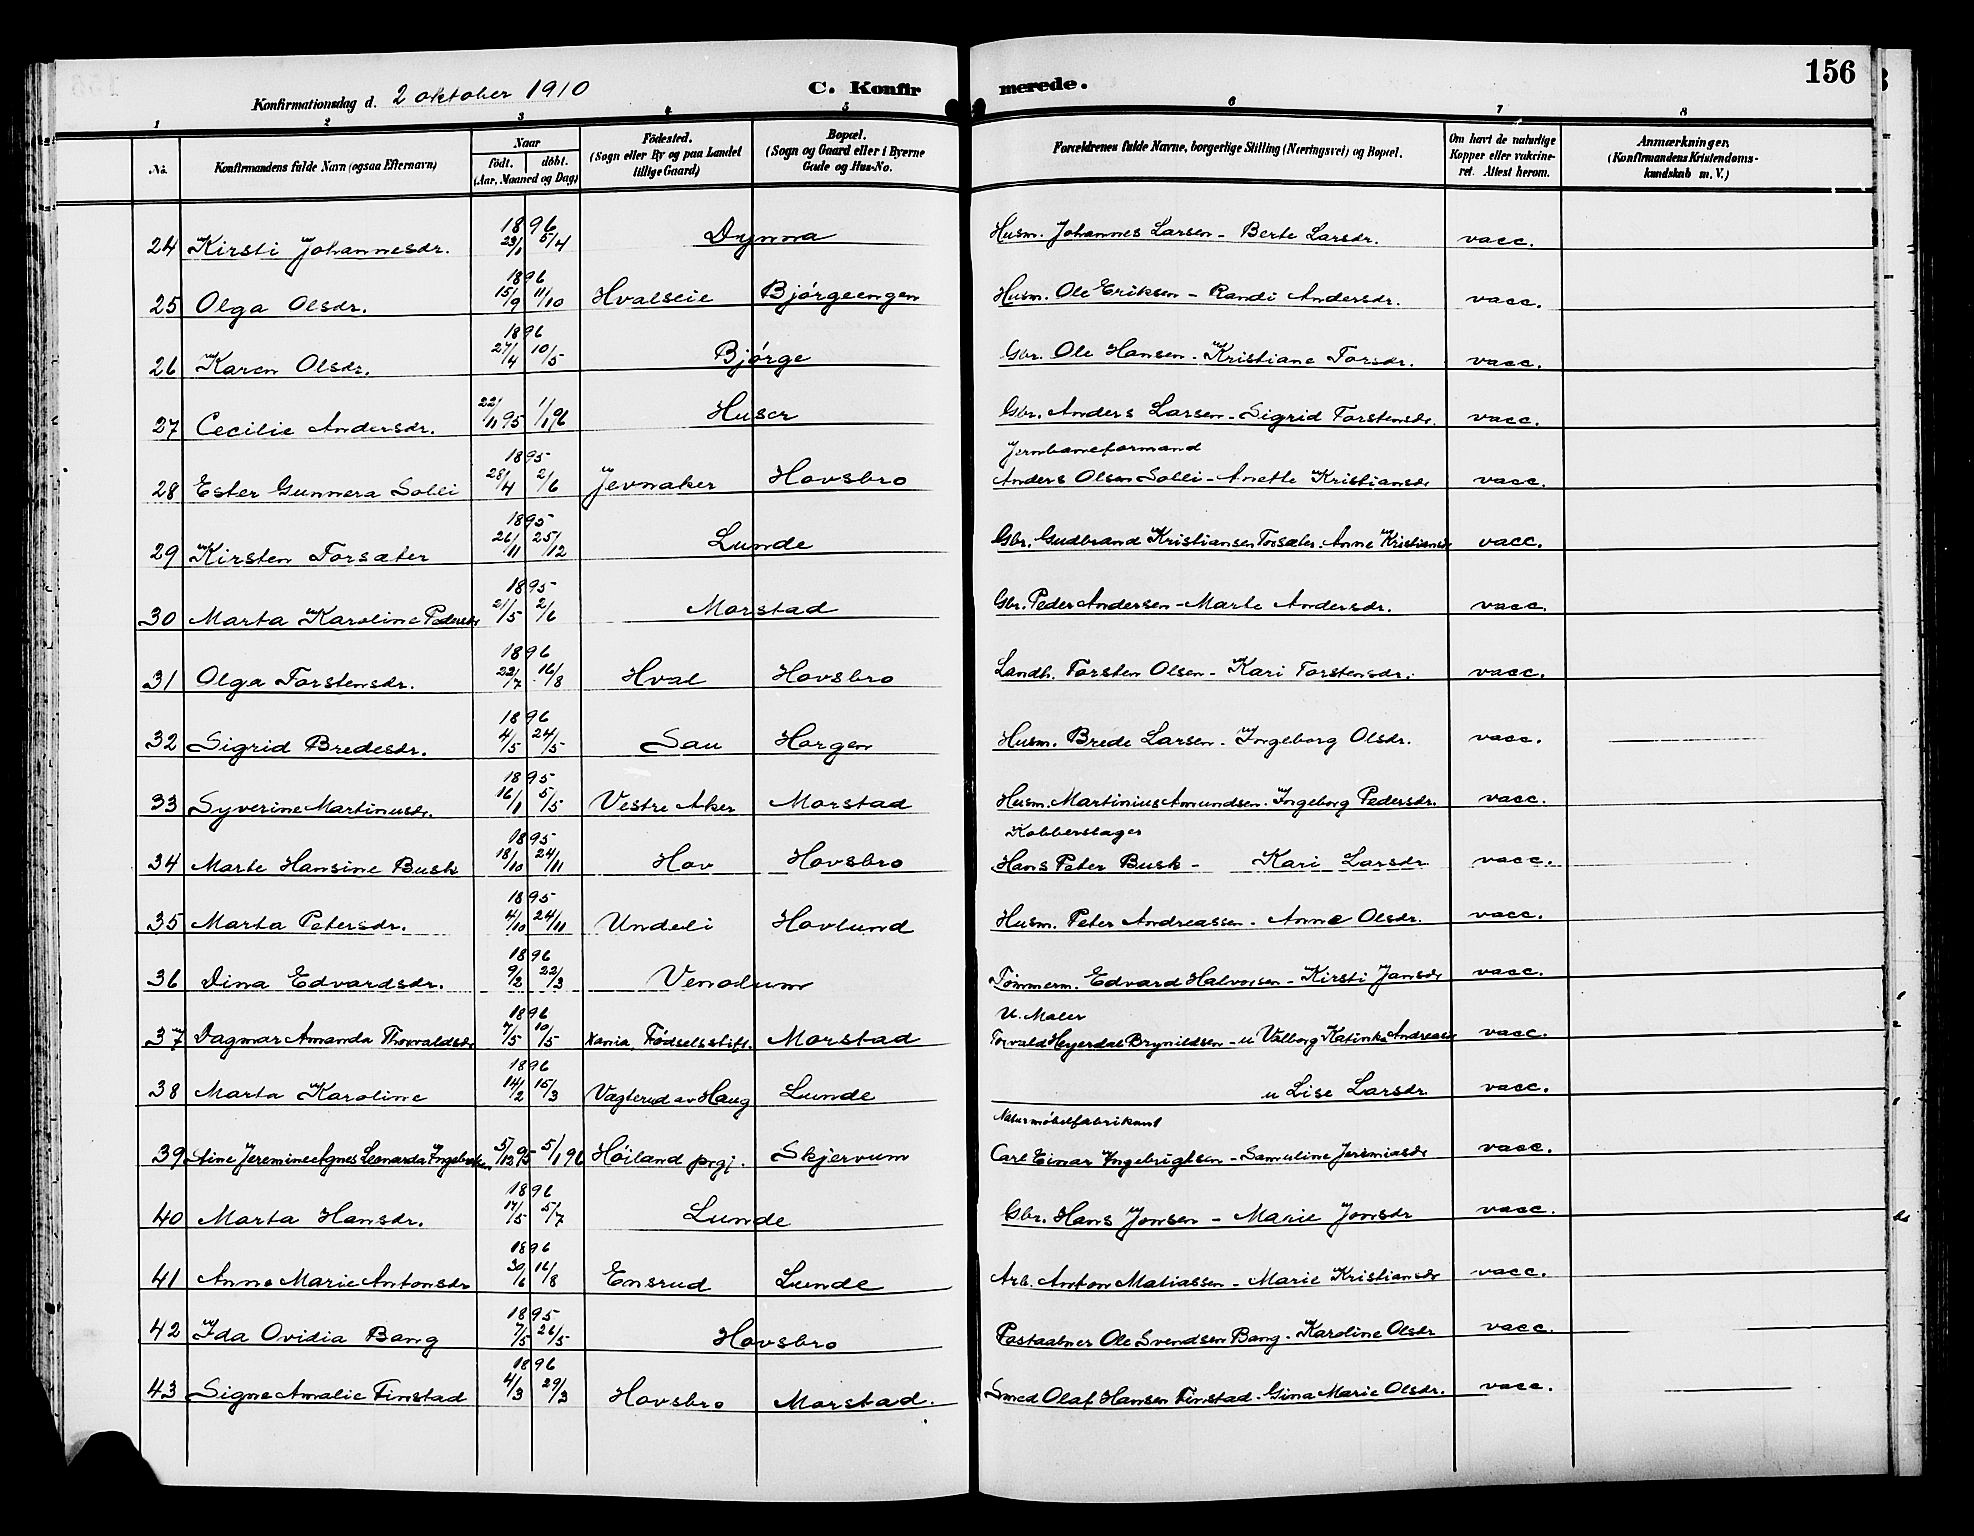 156
Konfirmationsdag d. 2 oktober 1910 C. Konfirmerede.
1 2 3 4 5 6 7 8
No. Konfirmandens fulde Navn (ogsaa Efternavn) Naar født. døbt. (Aar, Maaned og Dag) Fødested. (Sogn eller By og paa Landet tillige Gaard) Bopæl. (Sogn og Gaard eller i Byerne Gade og Hus-No. Forældrenes fulde Navne, borgerlige Stilling (Næringsvei) og Bopæl. Om havt de naturlige Kopper eller vakcineret. Attest herom. Anmærkninger. (Konfirmandens Kristendomskundskab m. V.)
24 Kirsti Johannesdr. 1896 23/1 5/4 Dynna Husm. Johannes Larsen - Berte Larsdr. vacc.
25 Olga Olsdr. 1896 15/9 11/10 Hvalseie Bjørgeengen Husm. Ole Eriksen - Randi Andersdr. vacc.
26 Karen Olsdr. 1896 27/4 10/5 Bjørge Gbr. Ole Hansen - Kristiane Torsdr. vacc.
27 Cecilie Andersdr. 22/11 95 1/1 96 Huser Gbr. Anders Larsen - Sigrid Torstensdr. vacc.
Jernbaneformand
28 Ester Gunnera Solli 1895 28/4 2/6 Jevnaker Hovsbro Anders Olsen Solli - Anette Kristiansdr vacc.
29 Kirsten Torsæter 1895 26/11 25/12 Lunde Gbr. Gudbrand Kristiansen Torsæter. Anne Kristiansdr vacc.
30 Marta Karoline Pedersdr 1895 21/5 2/6 Morstad Gbr. Peder Andersen - Marte Andersdr. vacc.
31 Olga Torstensdr. 1896 22/7 16/8 Hval Hovsbro Landh. Torsten Olsen - Kari Torstensdr. vacc.
32 Sigrid Bredesdr. 1896 4/5 24/5 Sau Horgen Husm. Brede Larsen - Ingeborg Olsdr. vacc.
33 Syverine Martinusdr. 1895 16/1 5/5 Vestre Aker Morstad Husm. Martinius Amundsen. Ingeborg Pedersdr. vacc.
Kobberslager
34 Marte Hansine Busk 1895 18/10 24/11 Hov Hovsbro Hans Peter Busk - Kari Larsdr vacc.
35 Marta Petersdr. 1895 4/10 24/11 Undeli Hovlund Husm. Peter Andreassen - Anne Olsdr. vacc.
36 Dina Edvardsdr. 1896 9/2 22/3 Venolum Tømmerm. Edvard Halvorsen - Kirsti Jansdr vacc.
U. Maler
37 Dagmar Amanda Thorvaldsdr 1896 7/5 10/5 Xania, Fødselsstift. Morstad Torvald Heyerdal Brynildsen - u Valborg Katinka Andreasdr vacc.
38 Marta Karoline 1896 14/2 15/3 Vægterud av Haug Lunde u Lise Larsdr vacc.
Naturmøbelfabrikant
39 Aine Jeremine Agnes Leonarda Ingebrigtsen 5/12 95 5/1 96 Høiland prgj. Skjervum Carl Einar Ingebrigtsen - Samuline Jeremiasdr vacc.
40 Marta Hansdr. 1896 17/5 5/7 Lunde Gbr. Hans Jonsen - Marie Jonsdr vacc.
41 Anna Marie Antonsdr 1896 30/6 16/8 Ensrud Lunde Arb. Anton Matiassen - Marie Kristiansdr vacc.
42 Ida Ovidia Bang 1895 7/5 26/5 Hovsbro Postaabner Ole Svendsen Bang - Karoline Olsdr vacc.
43 Signe Amalie Finstad 1896 4/3 29/3 Hovsbro Morstad. Smed Olaf Hansen Finstad - Gina Marie Olsdr. vacc.